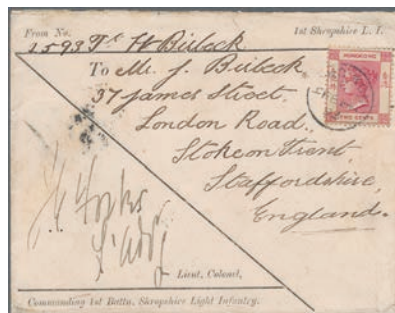 From No. 1st Shropshire L. I.
1593 Pte W Birbeck
To Mr. J. Birbeck
37 James Street,
London Road,
Stoke on Trent,
Staffordshire,
England.
HONG KONG
TWO CENTS
Lieut. Colonel,
Commanding 1st Battn. Shropshire Light Infantry.